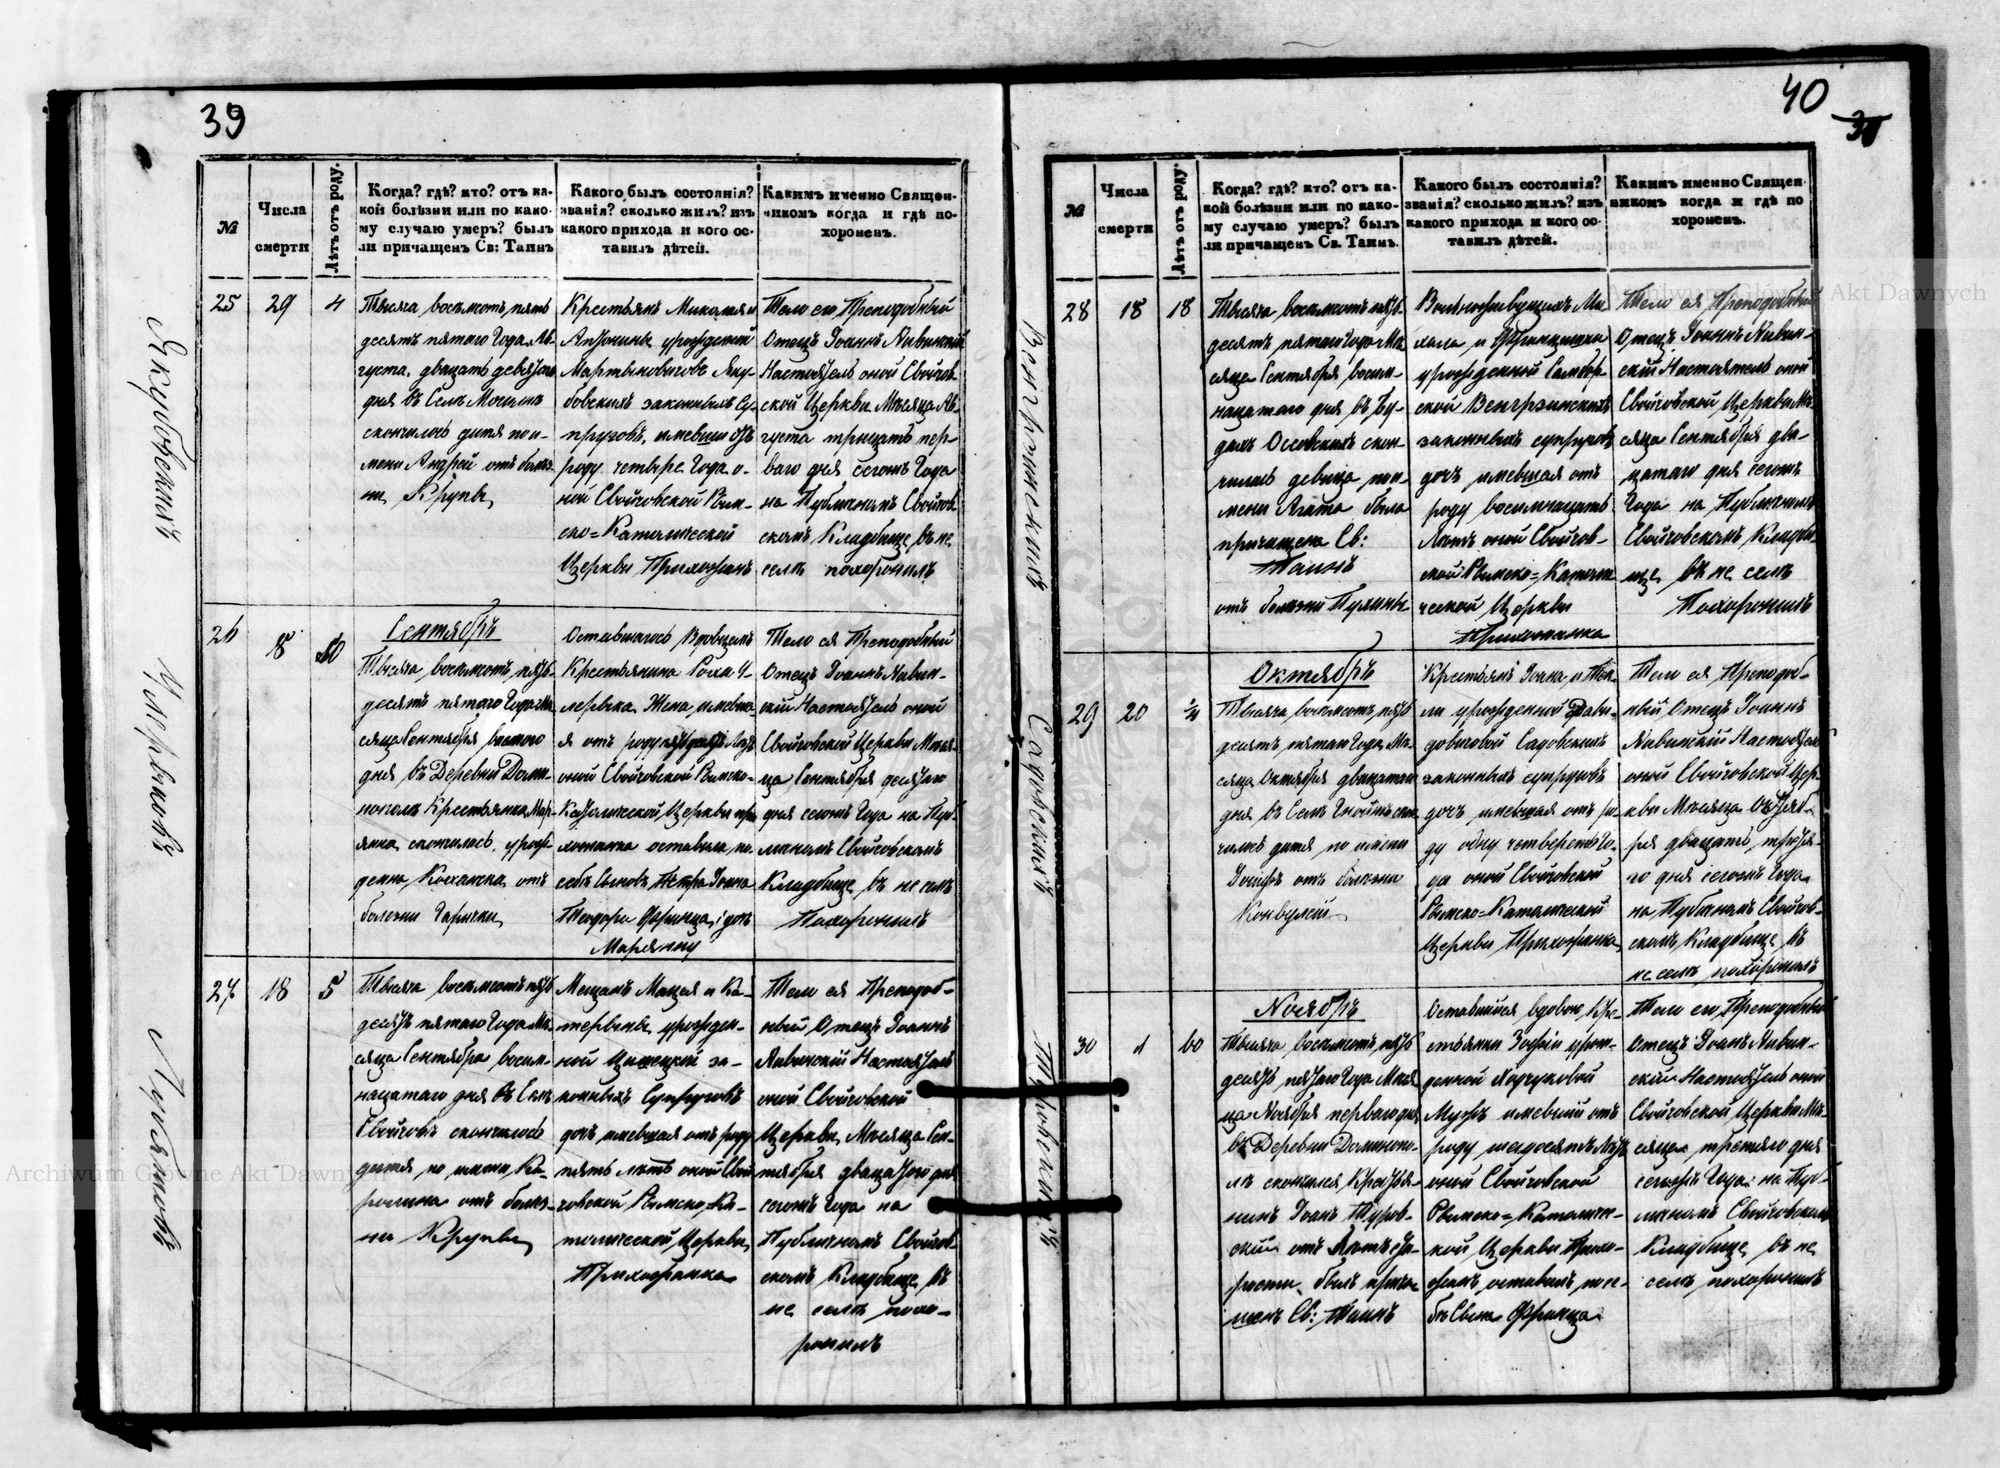 39
№
Числа
смерти
Лѣтъ отъ роду.
Когда? гдѣ? кто? отъ ка-
кой болѣзни или по како-
му случаю умеръ? былъ
ли причащенъ Св: Таинъ
Какого былъ состоянія?
званія? сколько жилъ? изъ
какого прихода и кого ос-
тавилъ дѣтей.
Какимъ именно Священ-
никомъ когда и гдѣ по-
хороненъ.
Якубовскихъ
25
29
4
Тысяча восемсотъ пять
десятъ пятаго Года Ав-
густа, двацать девятаго
дня въ Селѣ
скончилось дитя по и-
мени Андрей отъ болез-
ни Крупы
Крестьянъ Миколая и
Антонины урожденной
Мартыновичовъ Яку-
бовскихъ законныхъ Су-
пруговъ, имевши отъ
роду четыре Года о-
ной Свойчовской Рим-
ско=Католической
Церкви Прихожанъ
Тело его Преподобный
Отецъ Іоаннъ
Настоятель оной Свойчов-
ской Церкви Мѣсяца Ав-
густа трицать пер-
ваго дня сегожъ Года
на Публичномъ Свойчов
скомъ Кладбище въ не
селѣ похоронилъ
26
8
Сентябрь
Тысяча восемсотъ пять-
десятъ пятаго Года Мѣ
сяца Сентября
дня въ Деревни Доми-
нополѣ Крестьянка Мар-
янна скончилась, урож
денна
болезни Гарячки
Оставшагось Вдовцемъ
Крестьянина
Жена имевша-
я отъ роду
оной Свойчовской Римско-
Католической Церкви при
хожанка оставила по
себѣ Сыновъ Петра Іоана
Теодора Франца, и дочь
Марянну
Тело ея Преподобный
Отецъ Іоаннъ
Настоятель оной
Свойчовской Церкви Мѣся-
ца Сентября десятаго
дня сегожъ Года на Пуб-
личномъ Свойчовскомъ
Кладбище въ не селѣ
Похоронилъ
27
18
5
Тысяча восемсотъ пять
десятъ пятаго Года Мѣ-
сяца Сентября восем-
нацатаго дня въ Селѣ
Свойчовѣ скончилось
дитя по имени Ка-
ролина отъ болез-
ни Крупы
Мещанъ Мацея и Ка-
терины урожден-
ной за-
конныхъ Супруговъ
дочь, имевшая отъ роду
пять лѣтъ оной Свой
човской Римско Ка-
толической Церкви
Прихожанка
Тело ея Преподоб-
ный Отецъ Іоаннъ
Настоятель
оной Свойчовской
Церкви, Мѣсяца Сен-
тября двацатого дня
сегожъ Года на
Публичномъ Свойчов
скомъ Кладбище въ
не селѣ похо-
ронилъ
40
№
Числа
смерти
Лѣтъ отъ роду.
Когда? гдѣ? кто? отъ ка-
кой болѣзни или по како-
му случаю умеръ? былъ
ли причащенъ Св. Таинъ.
Какого былъ состоянія?
званія? сколько жилъ? изъ
какого прихода и кого ос-
тавилъ дѣтей.
Какимъ именно Священ-
никомъ когда и гдѣ по
хороненъ.
28
18
18
Тысяча восемсотъ пять-
десятъ пятаго Года Мѣ
сяца Сентября восем-
нацатаго дня, въ Бу-
дахъ Оссовскихъ скон-
чилась девица по и-
мени Агата была
причащена Св:
Таинъ
отъ болезни
Ми-
хала и Францишки
урожденной Самбор-
ской
законныхъ супруговъ
дочь имевшая отъ
роду восимнацать
Лѣтъ оной Свойчов-
ской Римско=Католи
ческой Церкви
Прихожанка
Тело ея Преподобный
Отецъ Іоаннъ
Настоятель оной
Свойчовской Церкви Мѣ-
сяца Сентября два-
цатаго дня сегожъ
Года на Публичномъ
Свойчовскомъ Кладби-
ще въ не селѣ
Похоронилъ
Садовскихъ
29
20
1/4
Октябрь
Тысяча восемсотъ пять
десятъ пятаго Года Мѣ-
сяца Октября двацатаго
дня въ Селѣ скон
чилась дитя по имени
отъ болезни
Конвулсій
Крестьянъ Іоана, и Тек-
ли урожденной Дави-
довичовой Садовскихъ
законныхъ супруговъ
дочь имевшая отъ ро-
ду одну четверть Го-
да оной Свойчовской
Римско=Католической
Церкви Прихожанка
Тело ея Преподоб-
ный Отецъ Іоаннъ
Настоятель
оной Свойчовской Цер-
кви Мѣсяца Октяб-
ря двацать третья-
го дня сегожъ Года
на Публичномъ Свойчов-
скомъ Кладбище въ
не селѣ похоронилъ
Туровскихъ
30
1
60
Ноябрь
Тысяча восемсотъ пять
десятъ пятаго Года Мѣся
ца Ноября перваго дня
въ Деревни Доминопо-
лѣ скончился Крестья-
нинъ Іоанъ Туров-
ский отъ
рости, былъ прича-
щенъ Св: Таинъ
Оставшійся вдовою, Кре-
стьянки Зофіи урож-
денной
Мужъ имевший отъ
роду шесдесятъ Лѣтъ
оной Свойчовской
Римско=Католичес-
кой Церкви Прихо-
жанъ, оставилъ по се-
бѣ Сына Франца
Тело его Преподобный
Отецъ Іоанъ
Настоятель оной
Свойчовской Церкви Мѣ-
сяца третяго дня
сегожъ Года на Пуб-
личномъ Свойчовскомъ
Кладбище въ не
селѣ похоронилъ
Archiwum Główne Akt Dawnych
Archiwum Główne Akt Dawnych